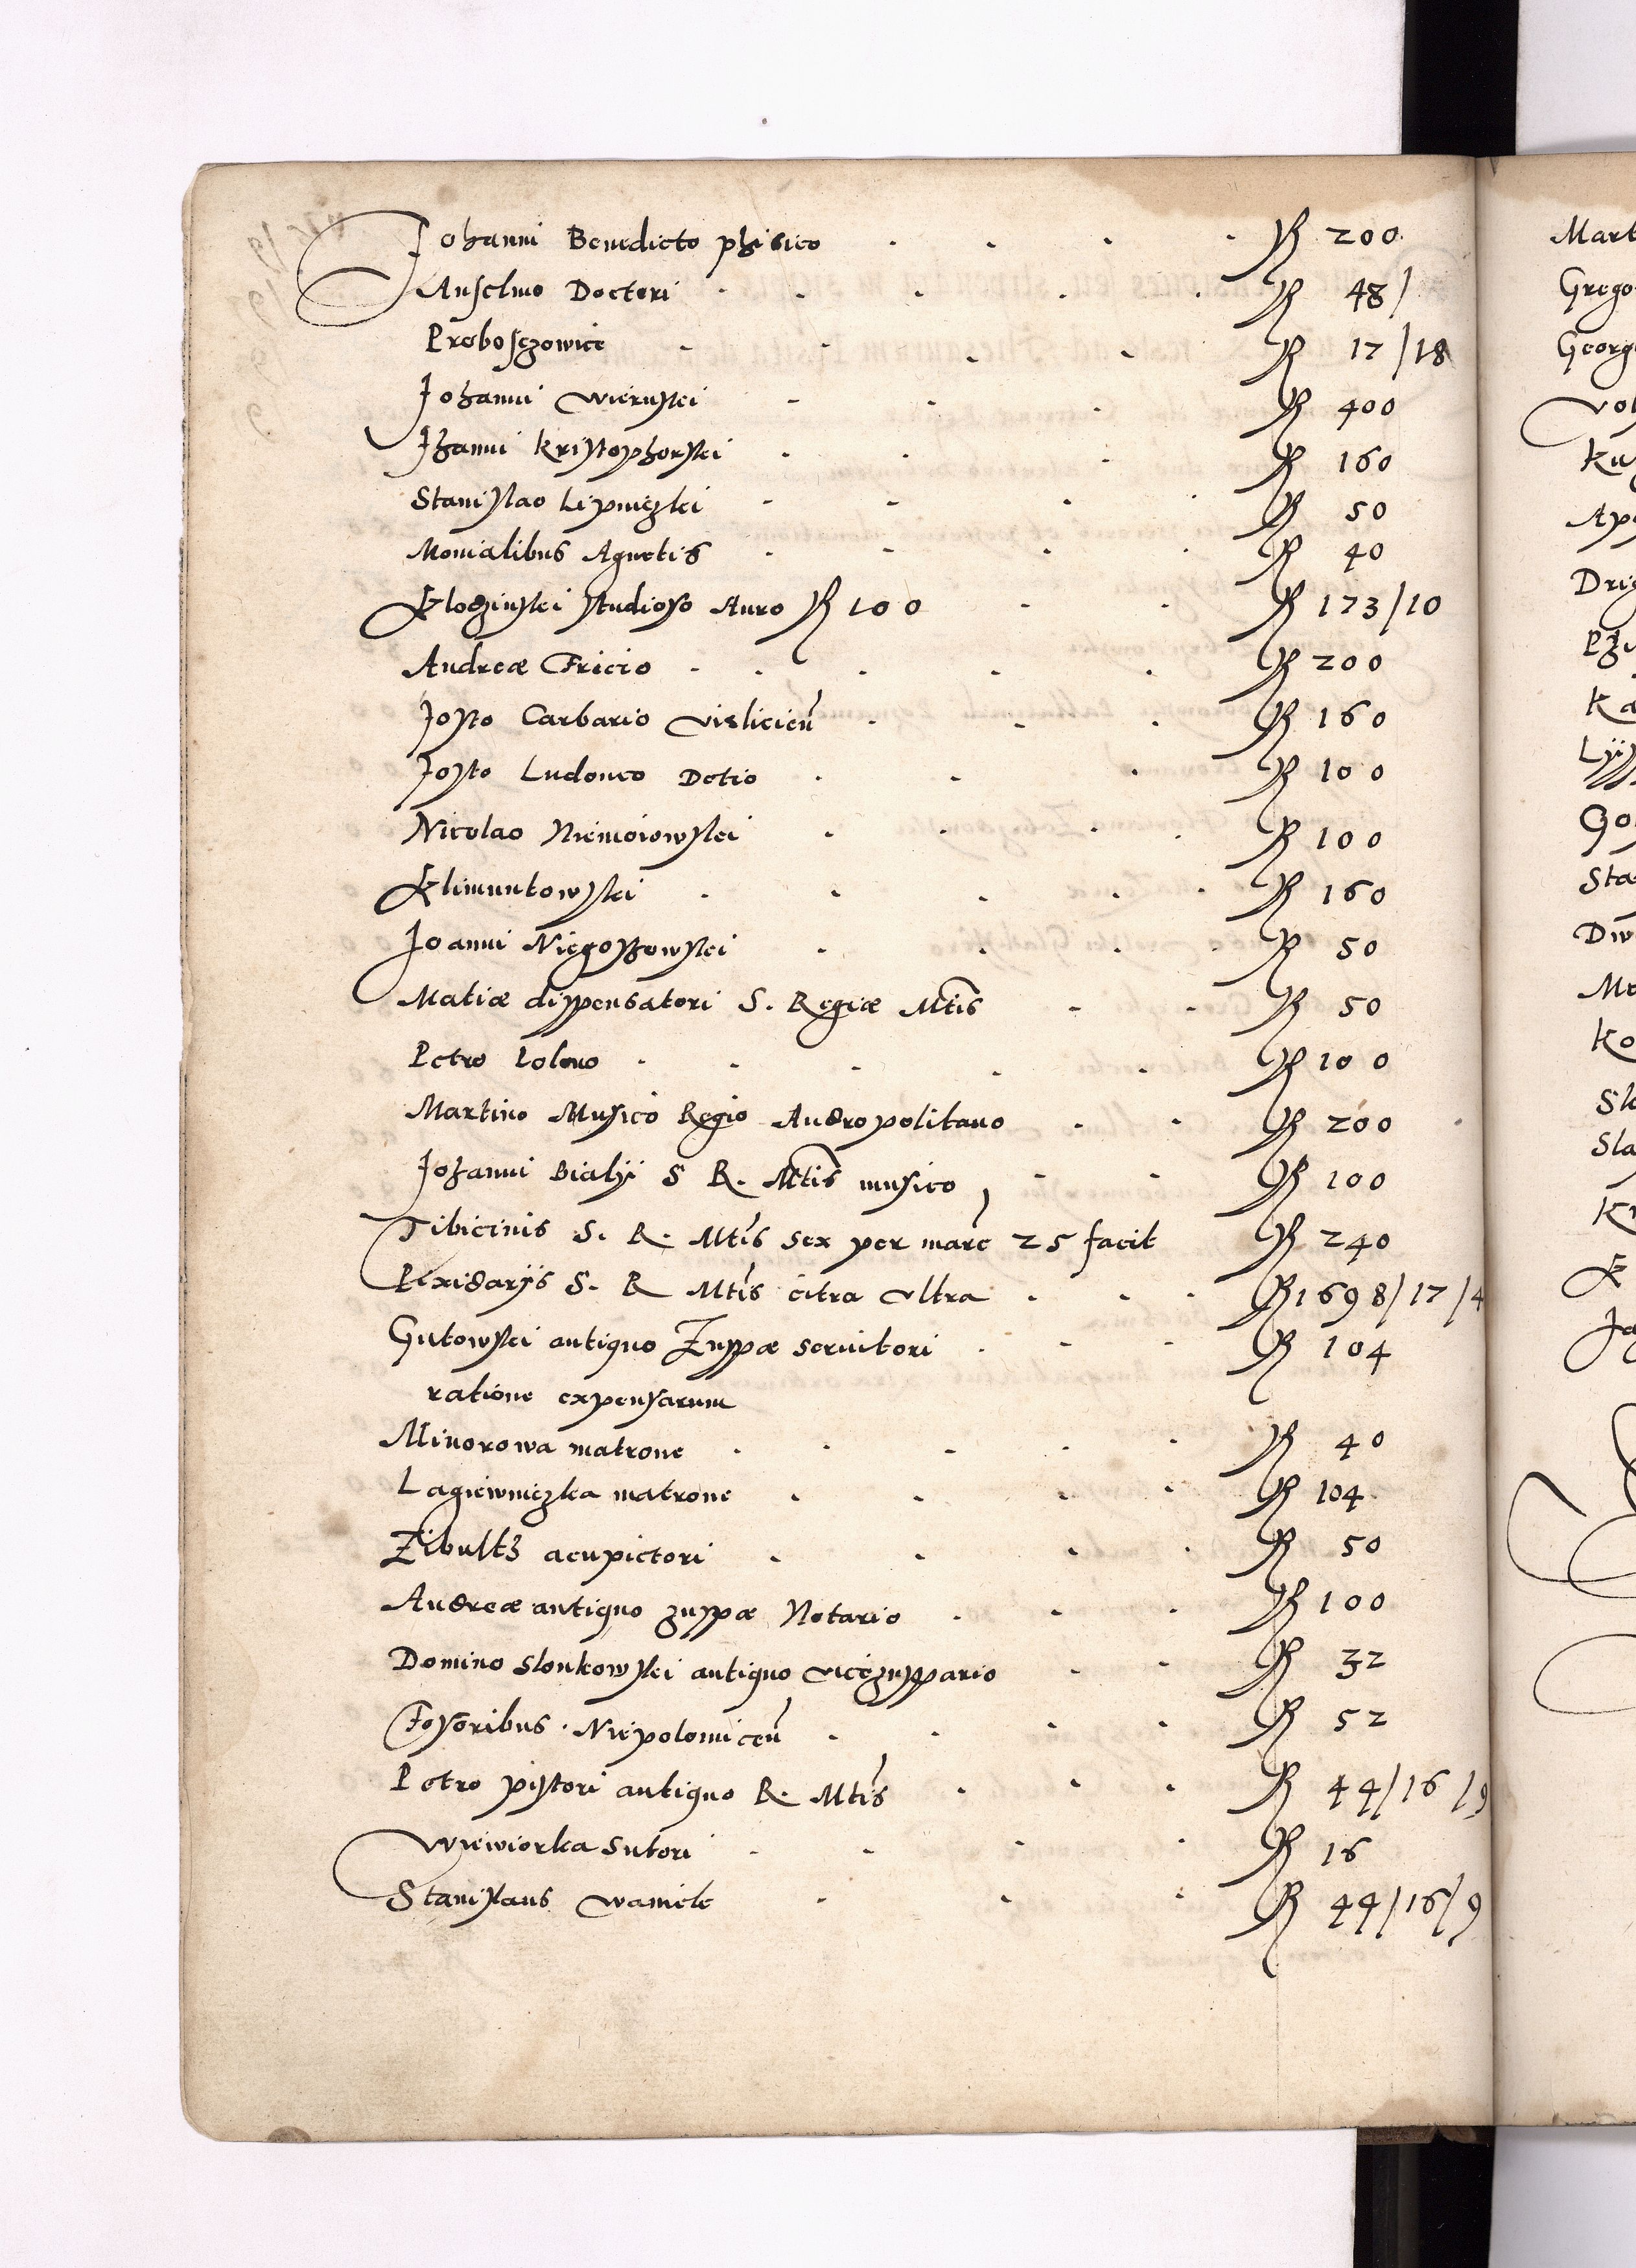 Johanni Benedicto phisico . . . . R 200
Anselmo Doctori . . . . . R 48/
Proboszowicz . . . . R 17/18
Johanni Wieruski . . . R 400
Jhanni Kristophorski . . . R 160
Stanislao Lipniczki . . . . R 50
Monialibus Agnetis . . . . R 40
Klodzinski studioso Auro R 100 . . R 173/10
Andreæ Fricio . . . . . R 200
Josto Carbario Visliciеn̄ . . . R 160
Josto Ludouco Detio . . . R 100
Nicolao Niemoiowski . . . . R 100
Klimuntowski . . . . . R 160
Joanni Niegoszowski . . . . R 50
Matiæ dispensatori S. Regiæ Mtis . . R 50
Petro Polono . . . . . R 100
Martino Musico Regio Andropolitano . . R 200
Johanni Bialy S R. Mtis musico , . . R 100
Tibicinis S. R. Mtis sex per marc 25 facit R 240
Pixidarijs S. R Mtis citra Vltra . . . R 1698/17/4
Gutowski antiquo Zuppæ seruitori . . . R 104
ratione expensarum
Minorowa matrone . . . . . R 40
Lagiewniczka matrone . . . . R 104
Zibultz acupictori . . . . R 50
Andreæ antiquo zuppæ Notario . . . R 100
Domino Slonkowski antiquo vicezuppario . . R 32
Fosoribus . Niepolomicen̄ . . . . R 52
Petro pistori antiquo R. Mtis . . . R 44/16/9
Wiewiorka Sutori . . . . R 16
Stanislaus Wamiele . . . R 44/16/9
Mart
Grego
Georg
Vol
Ap
Dri
Ka
Sta
Dw
Ko
Sla
Kr
Ja